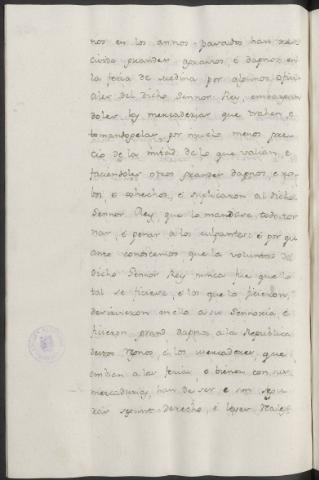 nos en los annos pasados han re-
civido grandes agravios é dapnos en
la feria de Medina por algunos Ofici-
ales del dicho Sennor Rey, embargan
doles las mercaderias que trahen, é
tomandogelas por mucho menos pre-
cio de la mitad de lo que valian, é
faciendoles otros grandes dapnos, é ro-
bos, é cohechos, é suplicaron al dicho
Sennor Rey, que lo mandase todo tor
nar, é penar a los culpantes: é por qu
anto conoscemos que la voluntad del
dicho Sennor Rey nunca fue que lo
tal se ficiese, é los que lo ficieron,
desirvieron en ello a su Sennoria, é
ficieron grand dapno a la Republica
destos Regnos, é los mercaderes, que
embian a las ferias, é bienes con sus
mercadurias, han de ser é son segu-
ros segunt derecho, é leyes Reales